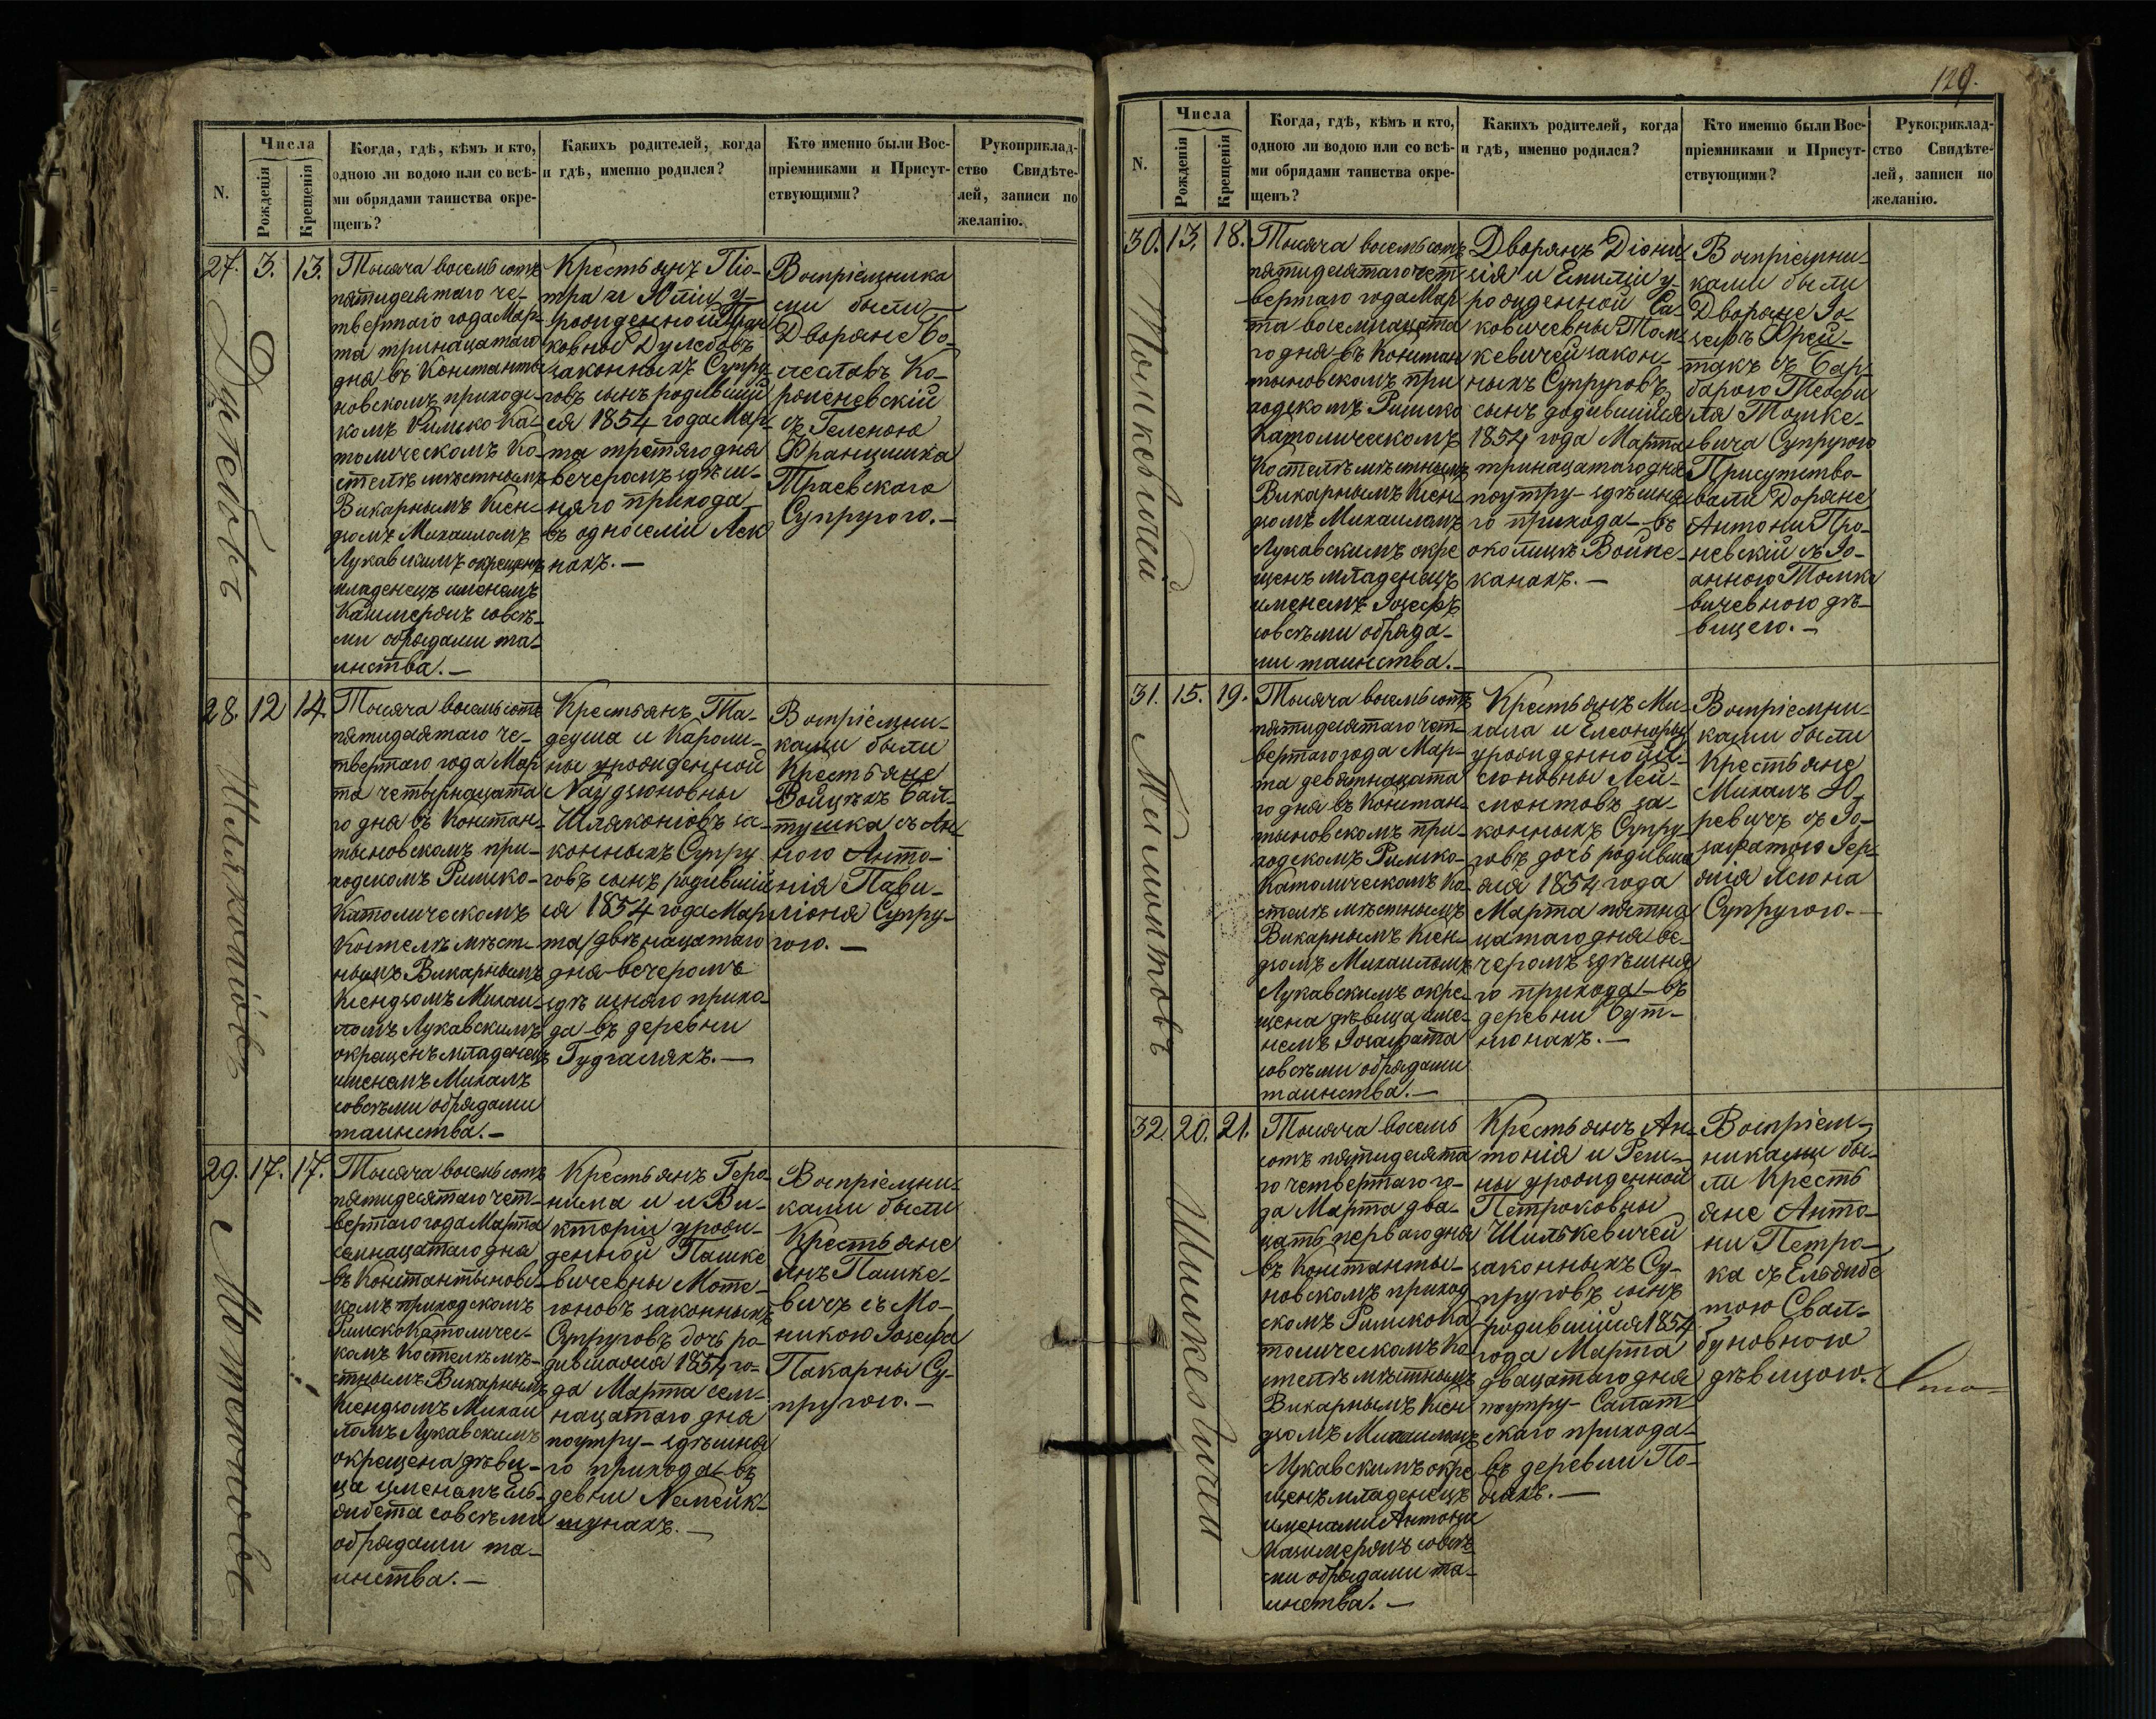 N.
Числа
Рожденія
Крещенія
Когда, гдѣ, кѣмъ и кто,
одною ли водою или со всѣ-
ми обрядами таинства окре-
щенъ?
Какихъ родителей, когда
и гдѣ, именно родился?
Кто именно были Вос-
пріемниками и Присут-
ствующими?
Рукоприклад-
ство Свидѣте-
лей, записи по
желанію.
27. 3. 13.
Дулебовъ
Тысяча восемьсотъ
пятидесятаго че-
твертаго года Мар-
та тринацатаго
дня въ Константы
новскомъ приходс-
комъ Римско Ка-
толическомъ Ко-
стелѣ мѣстнымъ
Викарнымъ Ксен-
дзомъ Михаиломъ
Лукавскимъ окрещенъ
младенецъ именемъ
Казимержъ совсѣ-
ми обрядами та-
инства.—
Крестьянъ Піо-
тра и Юліи у-
рожденной
ковны Дулебовъ
законныхъ Супру-
говъ сынъ родивший
ся 1854 года Мар-
та третяго дня
вечеромъ здѣш-
няго прихода
въ односеліи
нахъ.—
Воспріемника
ми были
Дворяне Бо-
леславъ Ко-
роленевскій
съ Геленою
Францишка
Траевскаго
Супругою.—
28. 12 14.
Шляконіовъ
Тысяча восемьсотъ
пятидсятаго че-
твертаго года Мар
та четырнацата
го дня въ Констан-
тыновскомъ при-
ходскомъ Римско-
Католическомъ
Костелѣ мѣст-
нымъ Викарнымъ
Ксендзомъ Михаи-
ломъ Лукавскимъ
окрещенъ младенецъ
именемъ Михалъ
совсѣми обрядами
таинства.—
Крестьянъ Та-
деуша и Кароли-
ны урожденной
Найдзюновны
Шляконіовъ за-
конныхъ Супру
говъ сынъ родившій
ся 1854 года Мар
та двѣнацатаго
дня вечеромъ
здѣшняго прихо-
да въ деревни
Гудгаляхъ.—
Воспріемни-
ками были
Крестьяне
Войцѣхъ Бал-
тушка съ Ан-
ною Анто-
нія Пави-
ліоня Супру-
гою.—
29. 17. 17.
Мотеюновъ
Тысяча восемьсотъ
пятидесятаго чет-
вертаго года Марта
семнацатаго дня
въ Константыновс-
комъ приходскомъ
Римско Католичес-
комъ Костелѣ мѣ-
стнымъ Викарнымъ
Ксендзомъ Михаи
ломъ Лукавскимъ
окрещена дѣви-
ца именемъ Ель-
жбета совсѣми
обрядами та-
инства.—
Крестьянъ Геро-
нима и и Ви-
кторіи урож-
денной Пашке
вичевны Моте-
юновъ законныхъ
Супруговъ дочь ро-
дившаяся 1854 го-
да Марта сем-
нацатаго дня
поутру- здѣшня
го прихода въ
девни Немейк-
шунахъ.—
Воспріемни-
ками были
Крестьяне
Янъ Пашке-
вичъ съ Мо-
никою Іозефа
Пакарны Су-
пругою.—
129.
N.
Числа
Рожденія
Крещенія
Когда, гдѣ, кѣмъ и кто,
одною ли водою или со всѣ-
ми обрядами таинства окре-
щенъ?
Какихъ родителей, когда
и гдѣ, именно родился?
Кто именно были Вос-
пріемниками и Присут-
ствующими?
Рукоприклад-
ство Свидѣте-
лей, записи по
желанію.
30. 13. 18.
Томкевичей
Тысяча восемьсотъ
пятидесятаго чет
вертаго года Мар
та восемнацата
го дня въ Констан
тыновскомъ при
ходскомъ Римско
Католическомъ
Костелѣ мѣстнымъ
Викарнымъ Ксен-
дзомъ Михаиломъ
Лукавскимъ окре
щенъ младенецъ
именемъ Іозефъ
совсѣми обряда-
ми таинства.—
Дворянъ Діони
зія и Емиліи у-
рожденной Са-
ковичевны Том-
кевичей закон-
ныхъ Супруговъ
сынъ родившійся
1854 года Марта
тринацатаго дня
поутру- здѣшня
го прихода- въ
околицѣ Войне-
канахъ.—
Воспріемни-
ками были
Дворяне Іо-
зефъ Фрей-
такъ съ Бар-
барою Теофи
ля Томке-
вича Супругою
Присутство-
вали Доряне
Антони Про-
невскій съ Іо-
анною Томке
вичевною дѣ-
вицею.—
31. 15. 19.
Леймонтовъ
Тысяча восемьсотъ
пятидесятаго чет-
вертаго года Мар-
та девятнацата
го дня въ Констан-
тыновскомъ при-
ходскомъ Римско-
Католическомъ Ко-
стелѣ мѣстнымъ
Викарнымъ Ксен-
дзомъ Михаиломъ
Лукавскимъ окре-
щена дѣвица име-
немъ Іозафата
совсѣми обрядами
таинства.—
Крестьянъ Ми-
хала и Елеоноры
урожденной
сюновны Лей-
монтовъ за-
конныхъ Супру-
говъ дочь родивша
яся 1854 года
Марта пятна
цатаго дня ве-
черомъ здѣшня
го прихода- въ
деревни Бут-
нюнахъ.—
Воспріемни-
ками были
Крестьяне
Михалъ Ю-
ревичъ съ Іо-
зафатою Гер-
Супругою.—
32 20. 21.
Шилькевичей
Тысяча восемь
сотъ пятидесята
го четвертаго го-
да Марта два-
цать перваго дня
въ Константы-
новскомъ приход
скомъ Римскока
толическомъ Ко
стелѣ мѣстнымъ
Викарнымъ Ксен
дзомъ Михаиломъ
Лукавскимъ окре
щенъ младенецъ
именами Антони
Казимержъ совсѣ
ми обрядами та-
инства.—
Крестьянъ Ан-
тонія и Реги-
ны урожденной
Петроковны
Шилькевичей
законныхъ Су-
пруговъ сынъ
родившійся 1854
года Марта
двацатаго дня
поутру- Салат
скаго прихода-
въ деревни По-
Воспріем-
никами бы-
ли Кресть
яне Анто-
ни Петро-
ка съ Ельжбе
тою Свал-
буновною
дѣвицою.